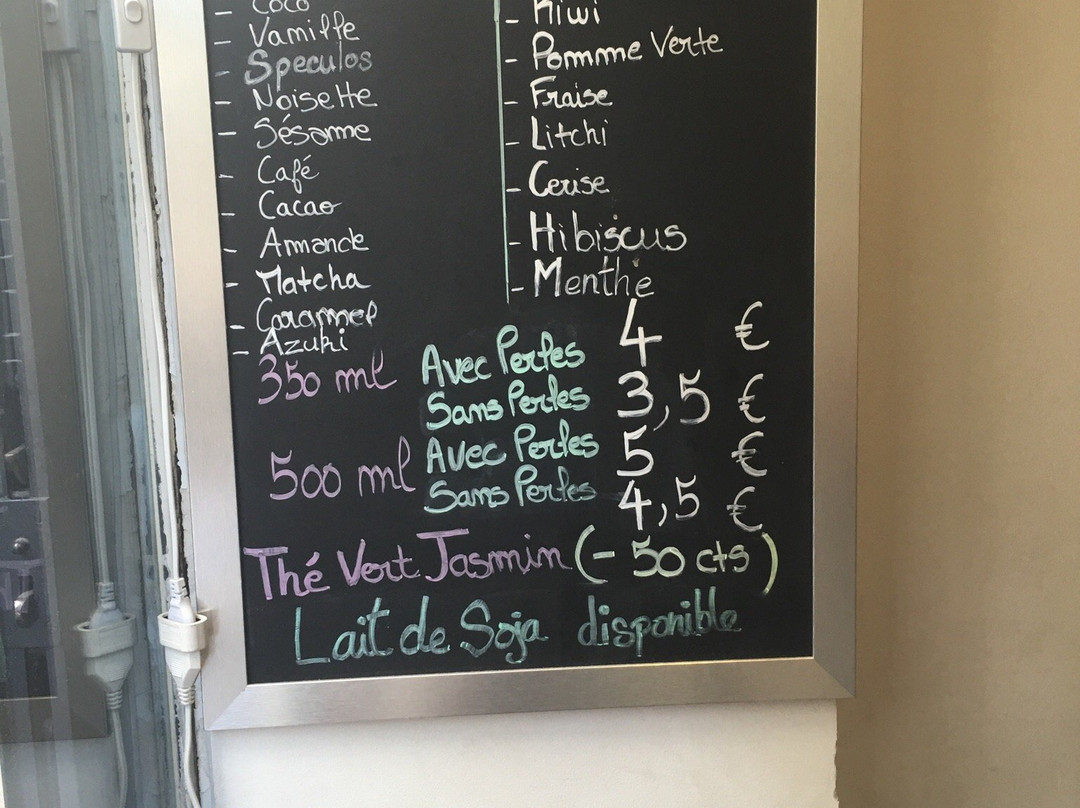 - Coco
- Vamille
- Speculos
- Noisette
- Sésame
- Café
- Cacao
- Amande
- Matcha
- Caramel
- Azuki
- Kiwi
- Pomme Verte
- Fraise
- Litchi
- Cerise
- Hibiscus
- Menthe
350 ml Avec Perles 4 €
Sans Perles 3,5 €
500 ml Avec Perles 5 €
Sans Perles 4,5 €
Thé Vert Jasmin (- 50 cts)
Lait de Soja disponible